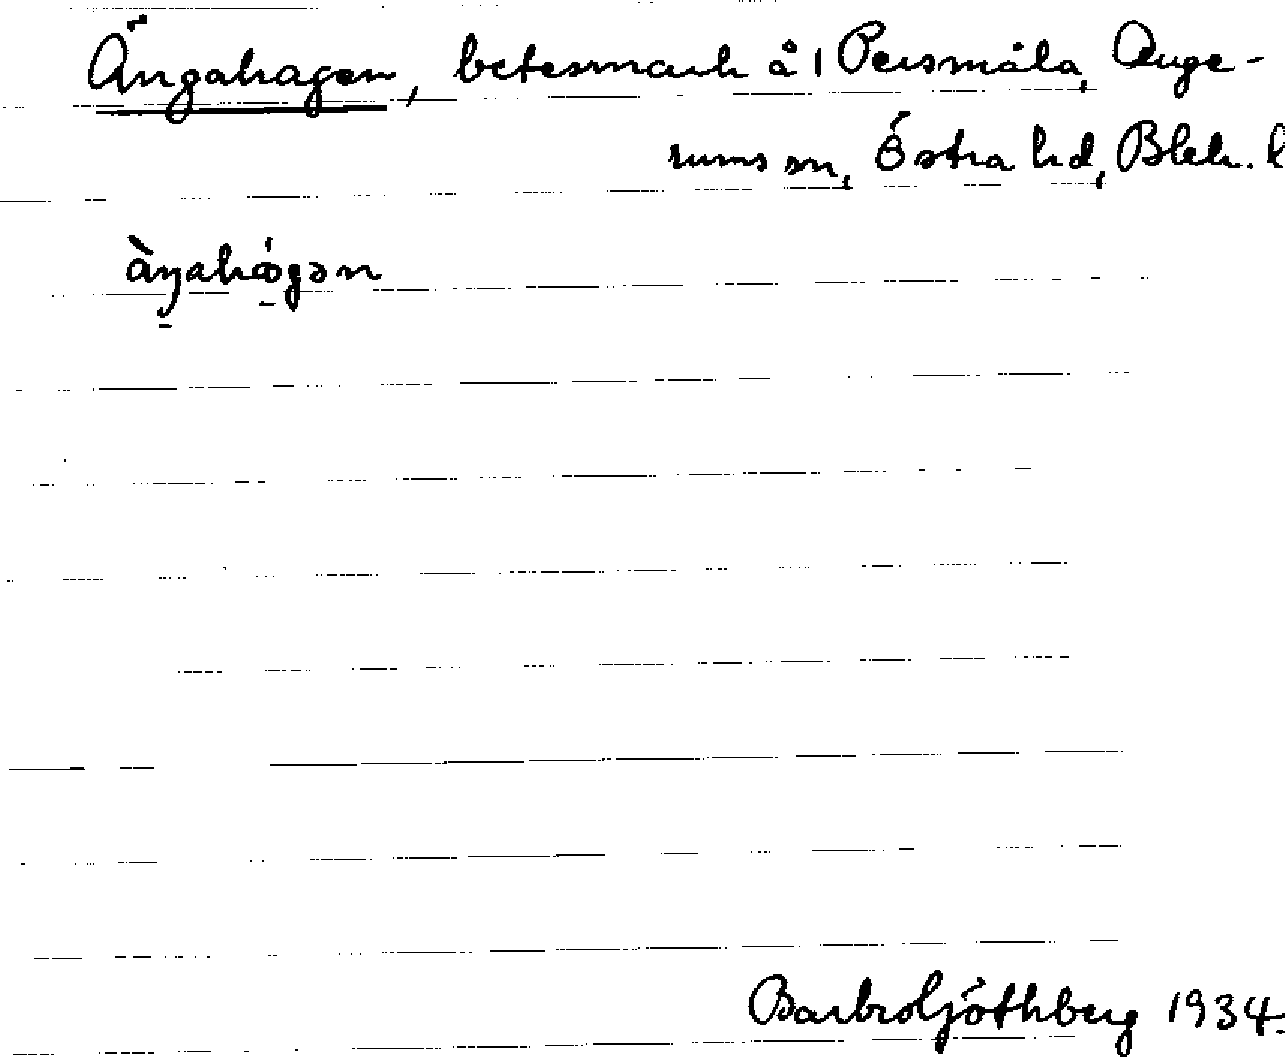 Ängahagen, betesmark å 1 Persmåla, Auge-
rums sn, Östra hd, Blek. l
àŋahǿgən
Barbro Göthberg 1934.